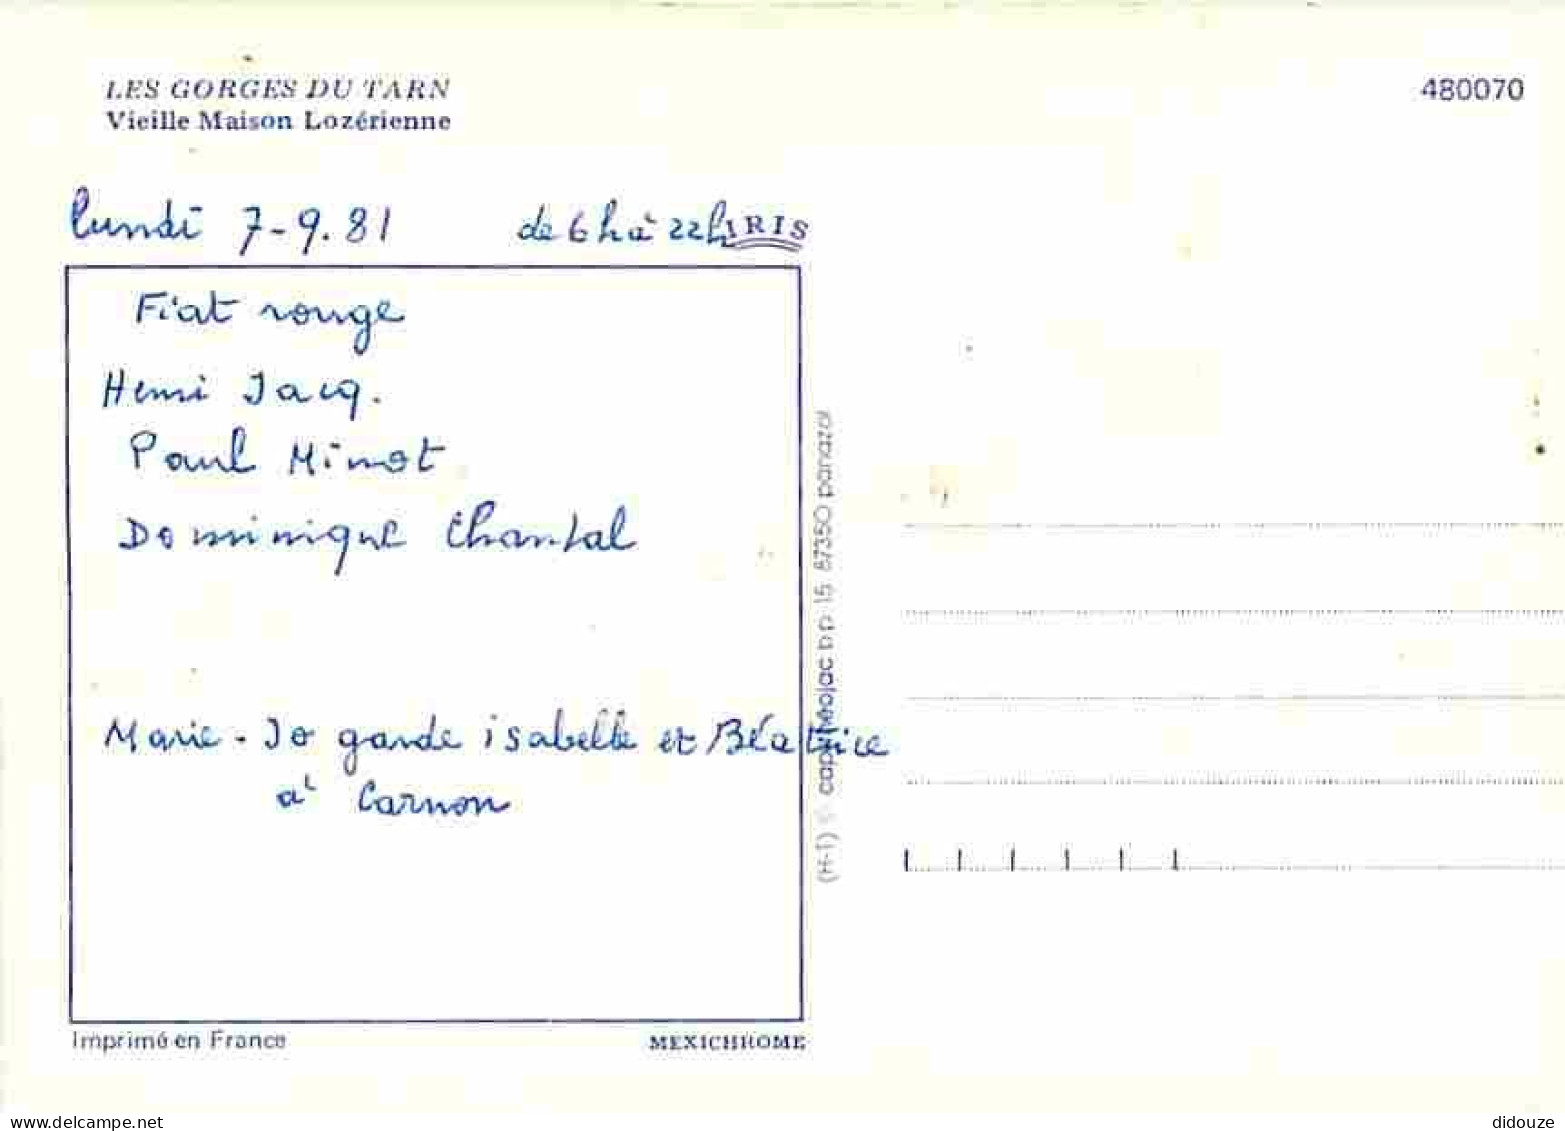 LES GORGES DU TARN
Vieille Maison Lozérienne
480070
lundi 7-9.81 de 6h à 22h
IRIS
Fiat rouge
Henri Jacq.
Paul Minot
Dominique Chantal
Marie-Jo garde isabelle et Béatrice
à Carnon
(H-1) © cap-théojac b.p. 15 87350 panazol
Imprimé en France
MEXICHROME
delcampe.net
didouze